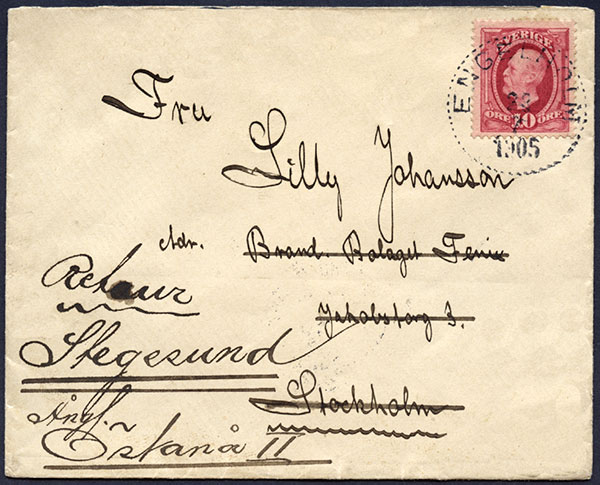 SVERIGE
ÖRE 10 ÖRE
ENGELHOLM
1905
Fru
Lilly Johansson
Adr. Brand. Bolaget Fenix
Jakobstorg 3.
Retour
Stegesund
Stockholm
Ångf.
Östanå II